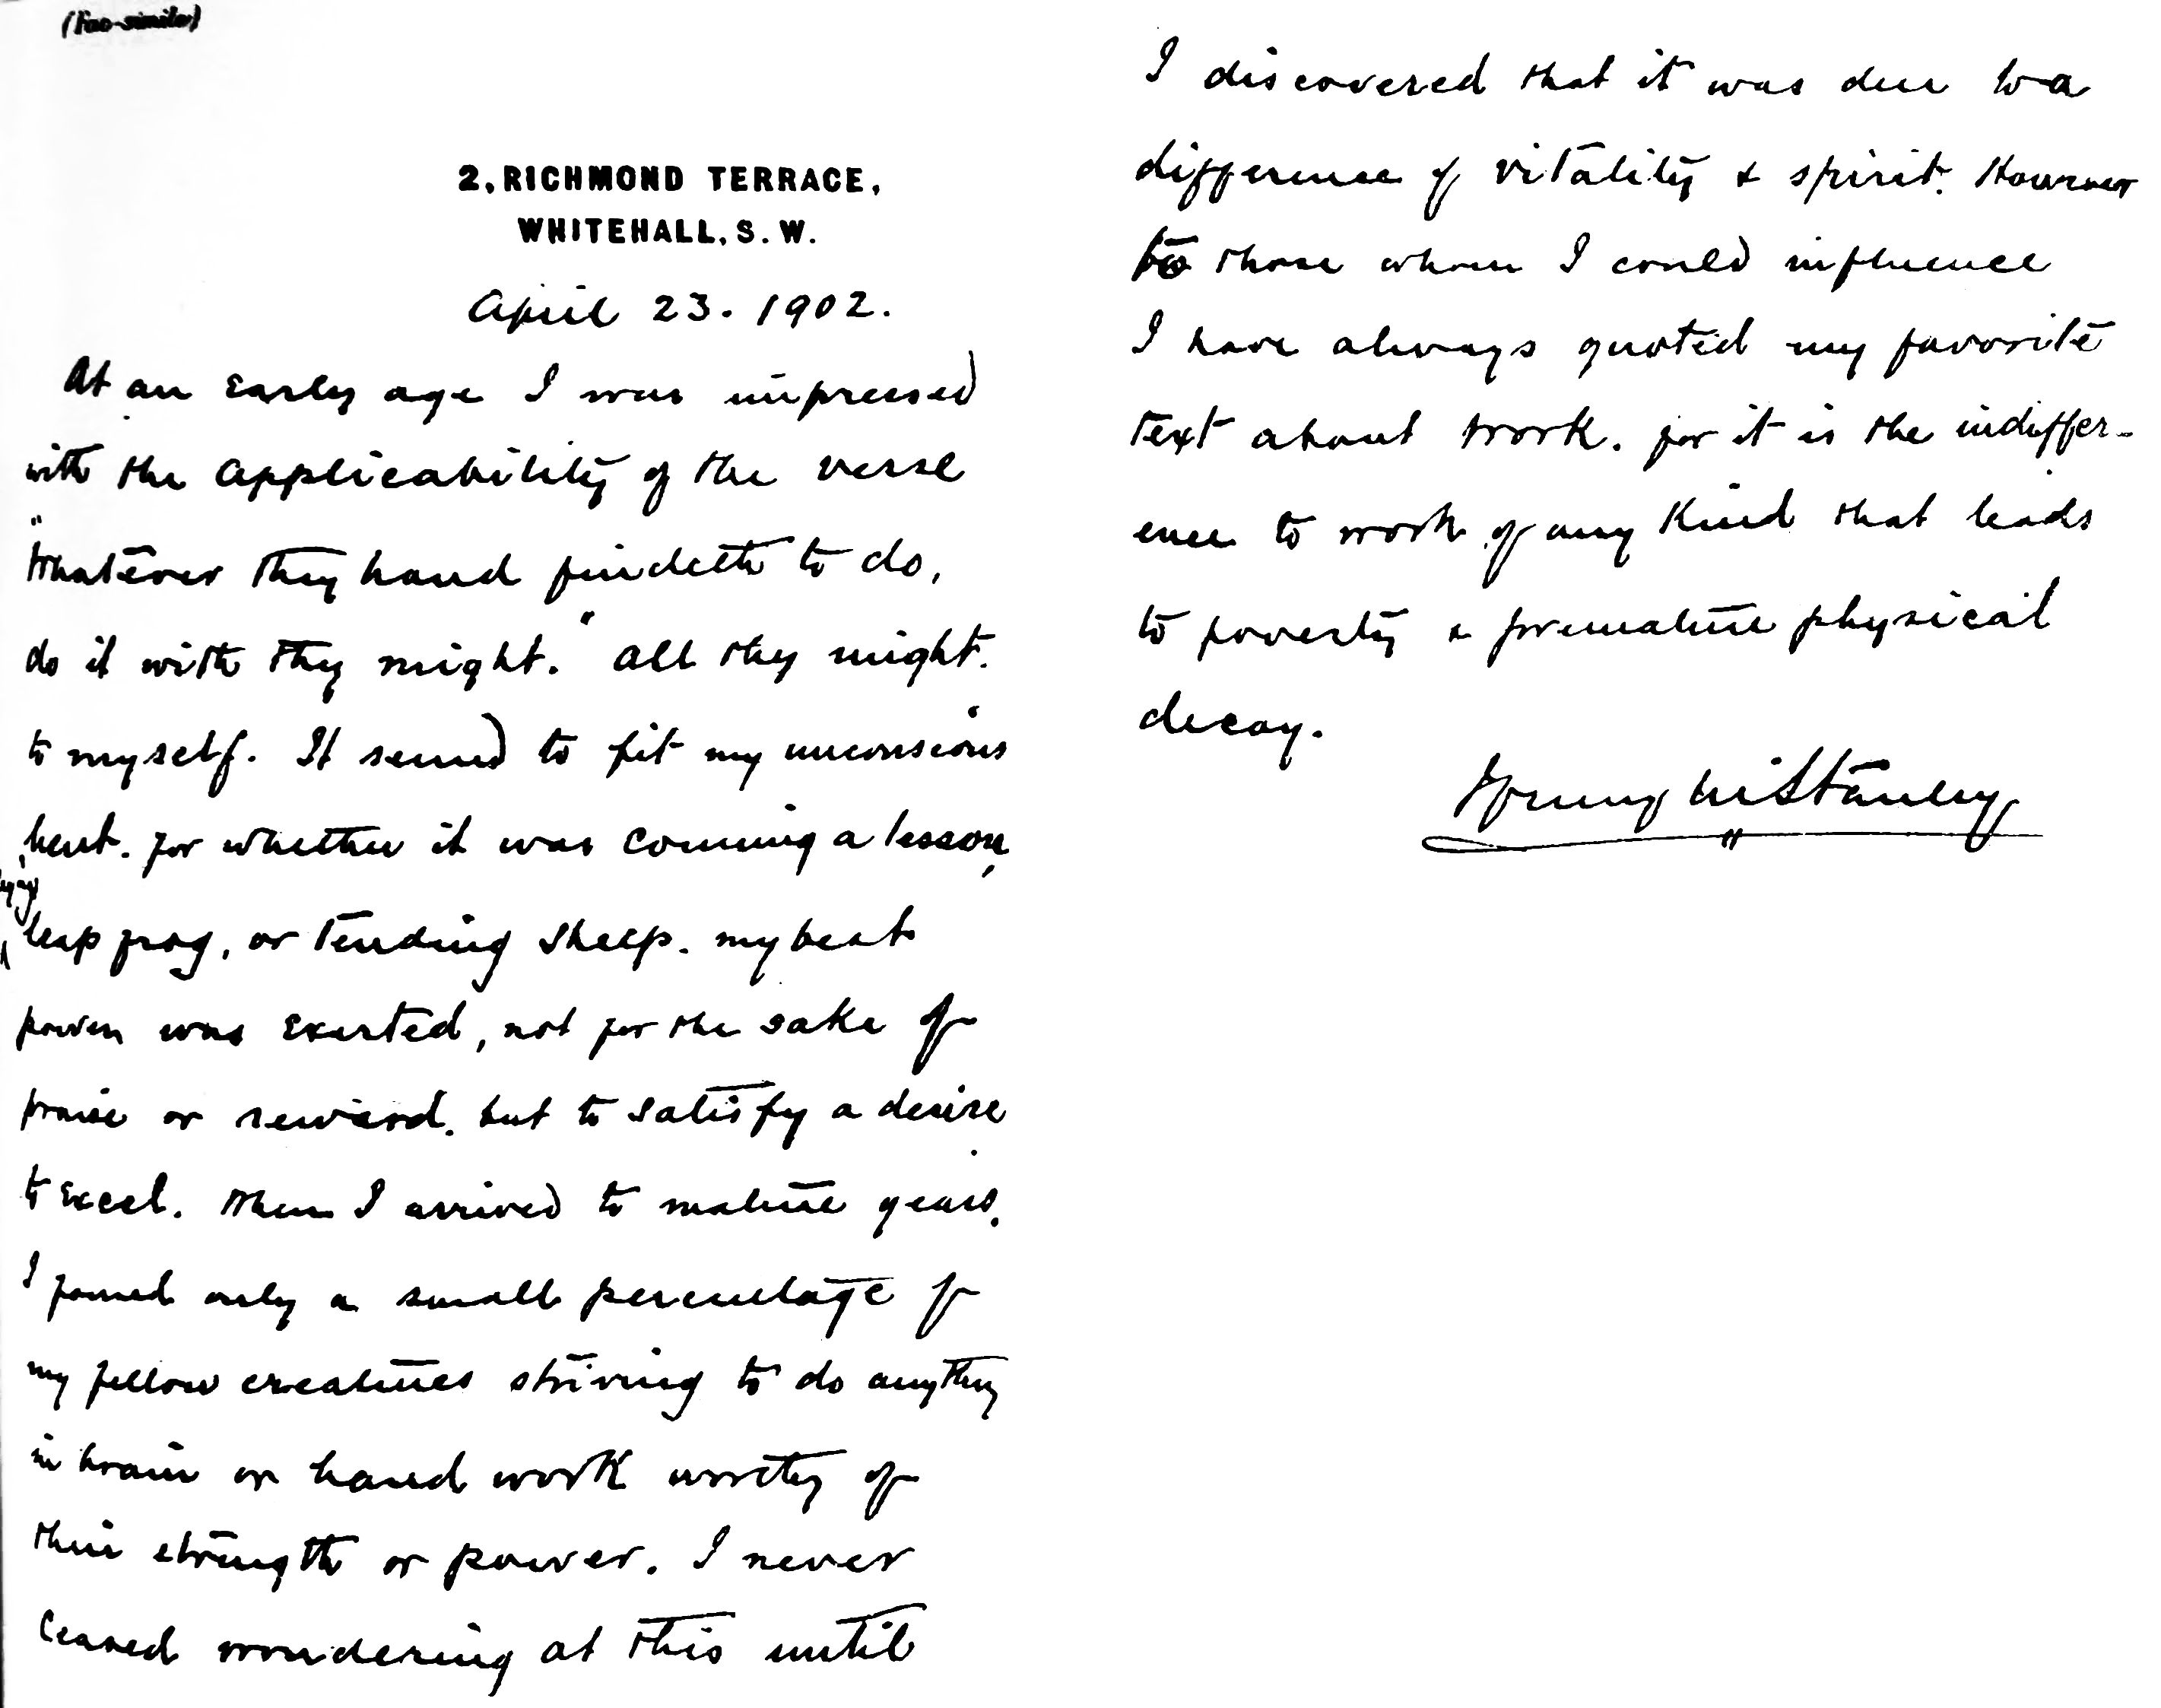 (Fac-simile)
2, RICHMOND TERRACE,
WHITEHALL, S. W.
April 23. 1902.
At an early age I was impressed
with the applicability of the verse
"Whatever thy hand findeth to do,
do it with thy might." "All thy might."
to myself. It seemed to fit my unconscious
bent. for whether it was conning a lesson,
leap frog, or tending sheep. my best
power was exerted, not for the sake of
praise or reward. but to satisfy a desire
to excel. When I arrived to mature years.
I found only a small percentage of
my fellow creatures striving to do anything
in brain or hand work worthy of
their strength or power. I never
ceased wondering at this until
I discovered that it was due to a
difference of vitality & spirit. However
to those whom I could influence
I have always quoted my favorite
text about work. for it is the indiffer-
ence to work of any kind that leads
to poverty & premature physical
decay.
Henry M Stanley